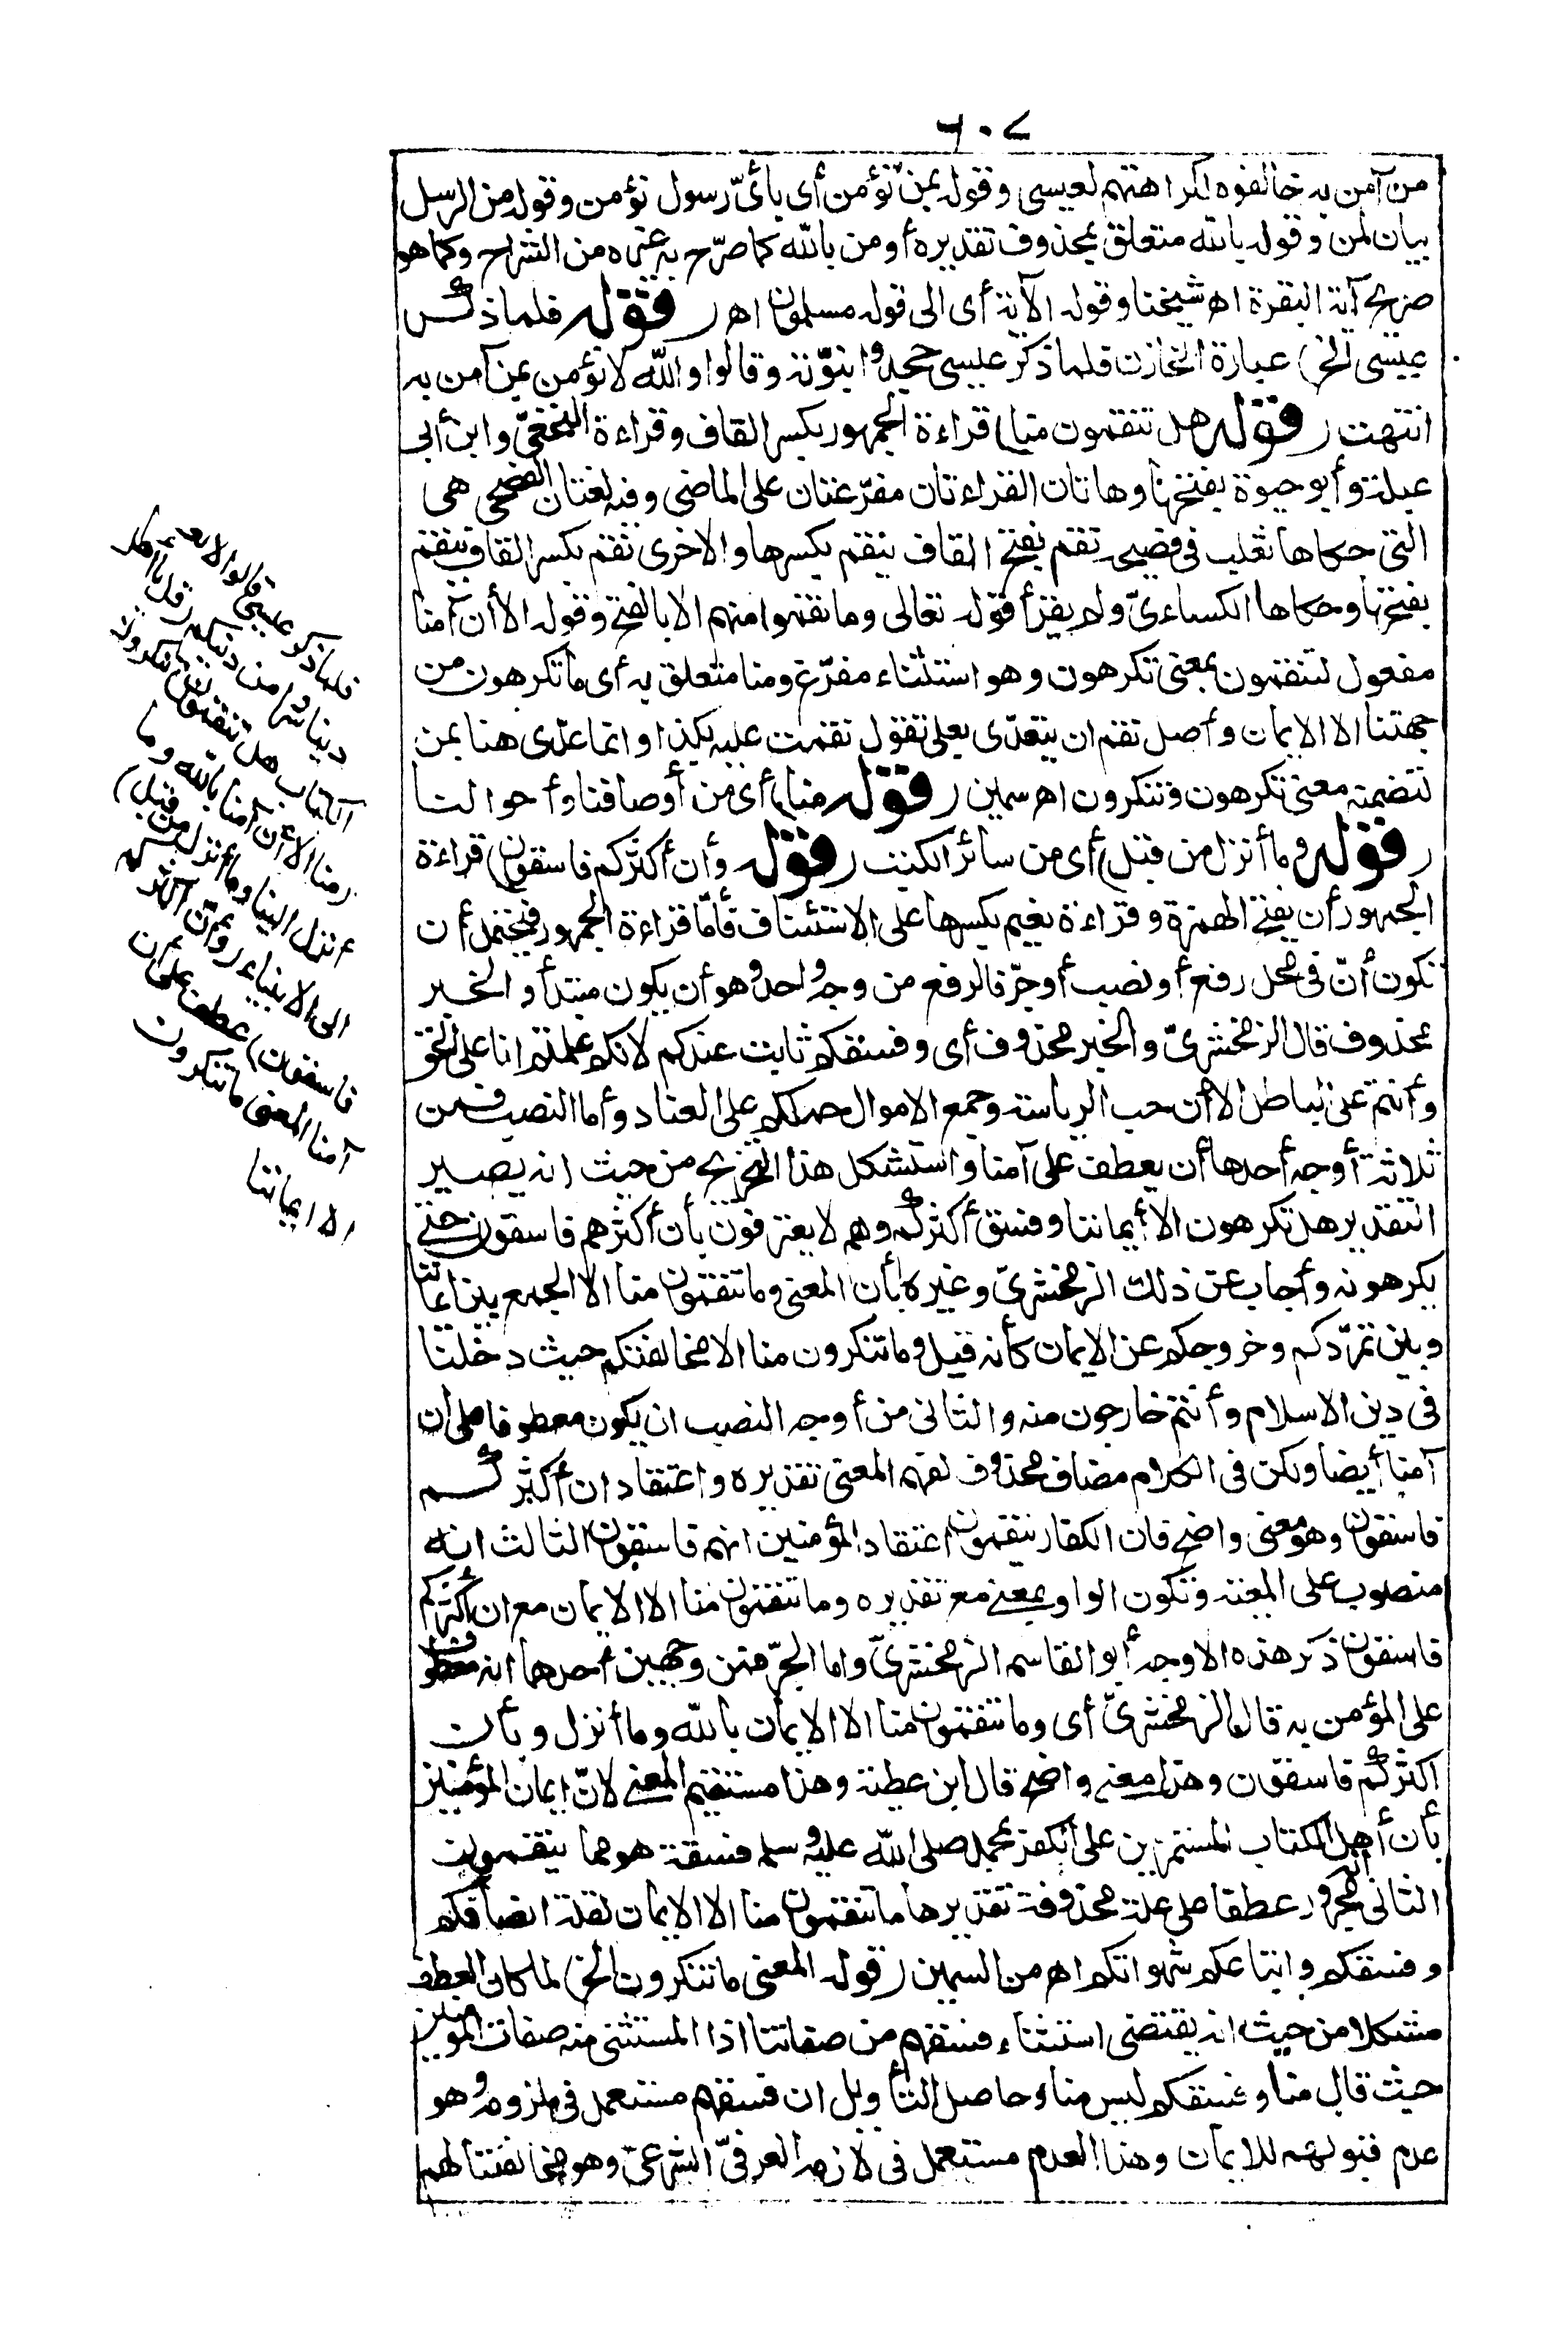 ٦٠٧
من آمن به خالفوه لكراهتهم لعيسى وقوله بمن نؤمن أى بأىّ رسول نؤمن وقوله من الرسل
بيان لمن وقوله بالله متعلق بمحذوف تقديره أومن بالله كما صرّح به غيره من الشراح وكما هو
صريح آية البقرة اهـ شيخنا وقوله الآية أى الى قوله مسلمون اهـ (قوله فلما ذكر
عيسى الخ) عبارة الخازن فلما ذكر عيسى جحدوا نبوّته وقالوا والله لا نؤمن بمن آمن به
انتهت (قوله هل تنقمون منا) قراءة الجمهور بكسر القاف وقراءة النخعىّ وابن أبى
عبلة وأبو حيوة بفتحها وهاتان القراءتان مفرّعتان على الماضى وفيه لغتان الفصحى هى
التى حكاها ثعلب فى فصيحه نقم بفتح القاف ينقم بكسرها والاخرى نقم بكسر القاف ينقم
بفتحها وحكاها الكساءىّ ولم يقرأ قوله تعالى وما نقموا منهم الا بالفتح وقوله الا أن آمنا
مفعول لتنقمون بمعنى تكرهون وهو استثناء مفرّغ ومنا متعلق به أى ما تكرهون من
جهتنا الا الايمان وأصل نقم ان يتعدّى بعلى تقول نقمت عليه بكذا وانما عدّى هنا بمن
لتضمنه معنى تكرهون وتنكرون اهـ سمين (قوله منا) أى من أوصافنا وأحوالنا
(قوله وما أنزل من قبل) أى من سائر الكتب (قوله وأن أكثركم فاسقون) قراءة
الجمهور أن بفتح الهمزة وقراءة نعيم بكسرها على الاستئناف فأمّا قراءة الجمهور فيحتمل أن
تكون أنّ فى محل رفع أو نصب أو جرّ فالرفع من وجه واحد وهو أن يكون مبتدأ والخبر
محذوف قال الزمخشرىّ والخبر محذوف أى وفسقكم ثابت عندكم لانكم علمتم انا على الحق
وأنتم على الباطل الا أن حب الرياسة وجمع الاموال حملكم على العناد وأما النصب فمن
ثلاثة أوجه أحدها أن يعطف على آمنا واستشكل هذا التخريج من حيث انه يصير
التقدير هل تكرهون الا ايماننا وفسق أكثركم وهم لا يعترفون بأن أكثرهم فاسقون حتى
يكرهونه وأجاب عن ذلك الزمخشرىّ وغيره بأن المعنى وما تنقمون منا الا الجمع بين ايماننا
وبين تمرّدكم وخروجكم عن الايمان كأنه قيل وما تنكرون منا الا مخالفتكم حيث دخلنا
فى دين الاسلام وأنتم خارجون منه والثانى من أوجه النصب ان يكون معطوفا على ان
آمنا أيضا ولكن فى الكلام مضاف محذوف لفهم المعنى تقديره واعتقاد ان أكثركم
فاسقون وهو معنى واضح فان الكفار ينقمون اعتقاد المؤمنين انهم فاسقون الثالث انه
منصوب على المعية وتكون الواو بمعنى مع تقديره وما تنقمون منا الا الايمان مع ان أكثركم
فاسقون ذكر هذه الاوجه أبو القاسم الزمخشرىّ واما الجرّ فمن وجهين أحدهما انه معطوف
على المؤمن به قال الزمخشرىّ أى وما تنقمون منا الا الايمان بالله وما أنزل وبأن
اكثركم فاسقون وهذا معنى واضح قال ابن عطية وهذا مستقيم المعنى لانّ ايمان المؤمنين
بأن أهل الكتاب المستمرين على الكفر بمحمد صلى الله عليه وسلم فسقة هو مما ينقمونه
الثانى انه مجرور عطفا على علة محذوفة تقديرها ما تنقمون منا الا الايمان لقلة انصافكم
وفسقكم واتباعكم شهواتكم اهـ من السمين (قوله المعنى ما تنكرون الخ) لما كان العطف
مشكلا من حيث انه يقتضى استثناء فسقهم من صفاتنا اذ المستثنى منه صفات المؤمنين
حيث قال منا وفسقكم ليس منا وحاصل التأويل ان فسقهم مستعمل فى ملزومه وهو
عدم قبولهم للايمان وهذا العدم مستعمل فى لازمه العرفىّ الشرعىّ وهو مخالفتنا لهم
فلما ذكر عيسى قالوا لا نعلم
دينا شرا من دينكم (قل يا أهل
الكتاب هل تنقمون) تنكرون
(منا الا أن آمنا بالله وما
أنزل الينا وما أنزل من قبل)
الى الانبياء (وأن أكثركم
فاسقون) عطف على أن
آمنا المعنى ما تنكرون
الا ايماننا